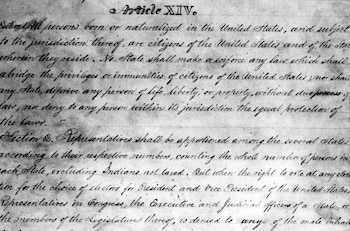 Article XIV.
Section 1. All persons born or naturalized in the United States, and subject
to the jurisdiction thereof, are citizens of the United States and of the State
wherein they reside. No State shall make or enforce any law which shall
abridge the privileges or immunities of citizens of the United States; nor shall
any State deprive any person of life, liberty, or property, without due process of
law; nor deny to any person within its jurisdiction the equal protection of
the laws.
Section 2. Representatives shall be apportioned among the several States
according to their respective numbers, counting the whole number of persons in
each State, excluding Indians not taxed. But when the right to vote at any election
for the choice of electors for President and Vice President of the United States,
Representatives in Congress, the Executive and Judicial officers of a State, or
the members of the Legislature thereof, is denied to any of the male inhab